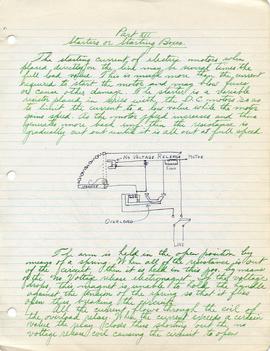 Part XII
Starters or Starting Boxes.
The starting current of electric motors, when
placed directly on the line may be several times the
full load value. This is much more than the current
required to start the motor and may blow fuses
or cause other damage. The starter is a variable
resistor placed in series with the D.C. motors so as
to limit the current to a low value while the motor
gains speed. As the motor speed increases and thus
generates more back the resistance is
gradually cut out until it is all out at full speed.
NO VOLTAGE RELEASE
MOTOR
HANDLE
OVERLOAD
LINE
The arm is held in the open position by
means of a spring. When all of the resistance is out
of the circuit, then it is held in this pos. by means
of the No Voltage release electromagnet. If the voltage
drops, this magnet is unable to hold the handle
against the tension of the spring so that it flies
open thus breaking the circuit.
All the current flows through the coil of
the overload relay. If the current exceeds a certain
value the relay closes thus shorting out the no
voltage release coil causing the circuit to open